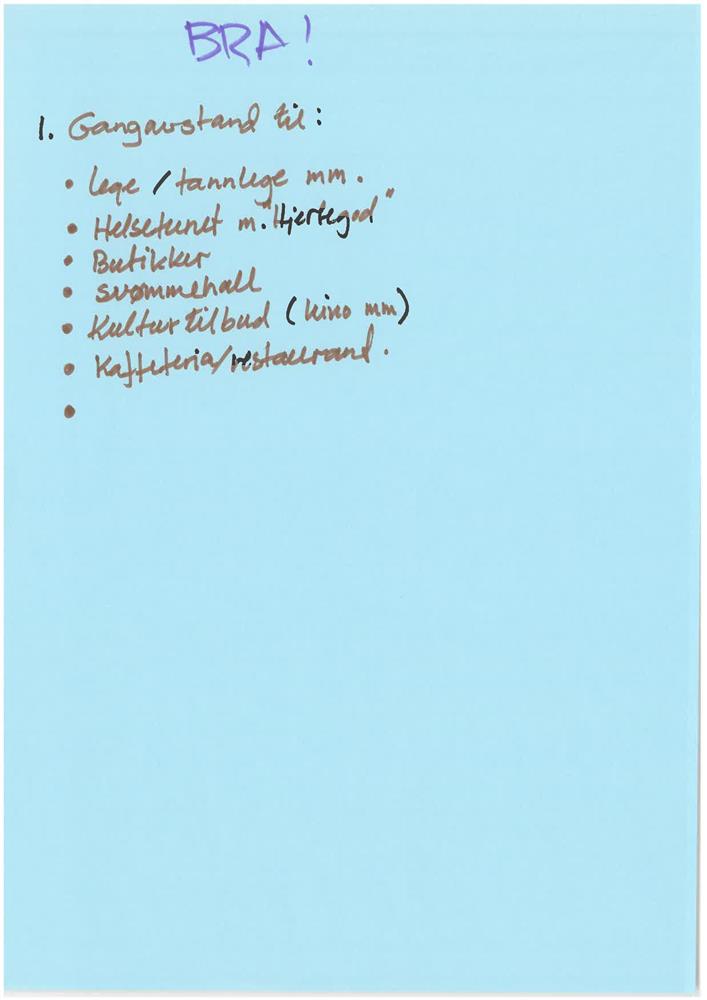 BRA!
1. Gangavstand til:
• lege / tannlege mm.
• Helsetunet m. "Hjertegod"
• Butikker
• svømmehall
• Kulturtilbud (kino mm)
• Kaffeteria/restaurand.
•